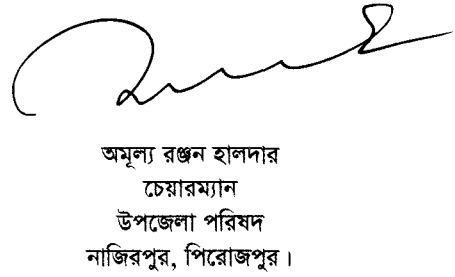 অমূল্য রঞ্জন হালদার
চেয়ারম্যান
উপজেলা পরিষদ
নাজিরপুর, পিরোজপুর।